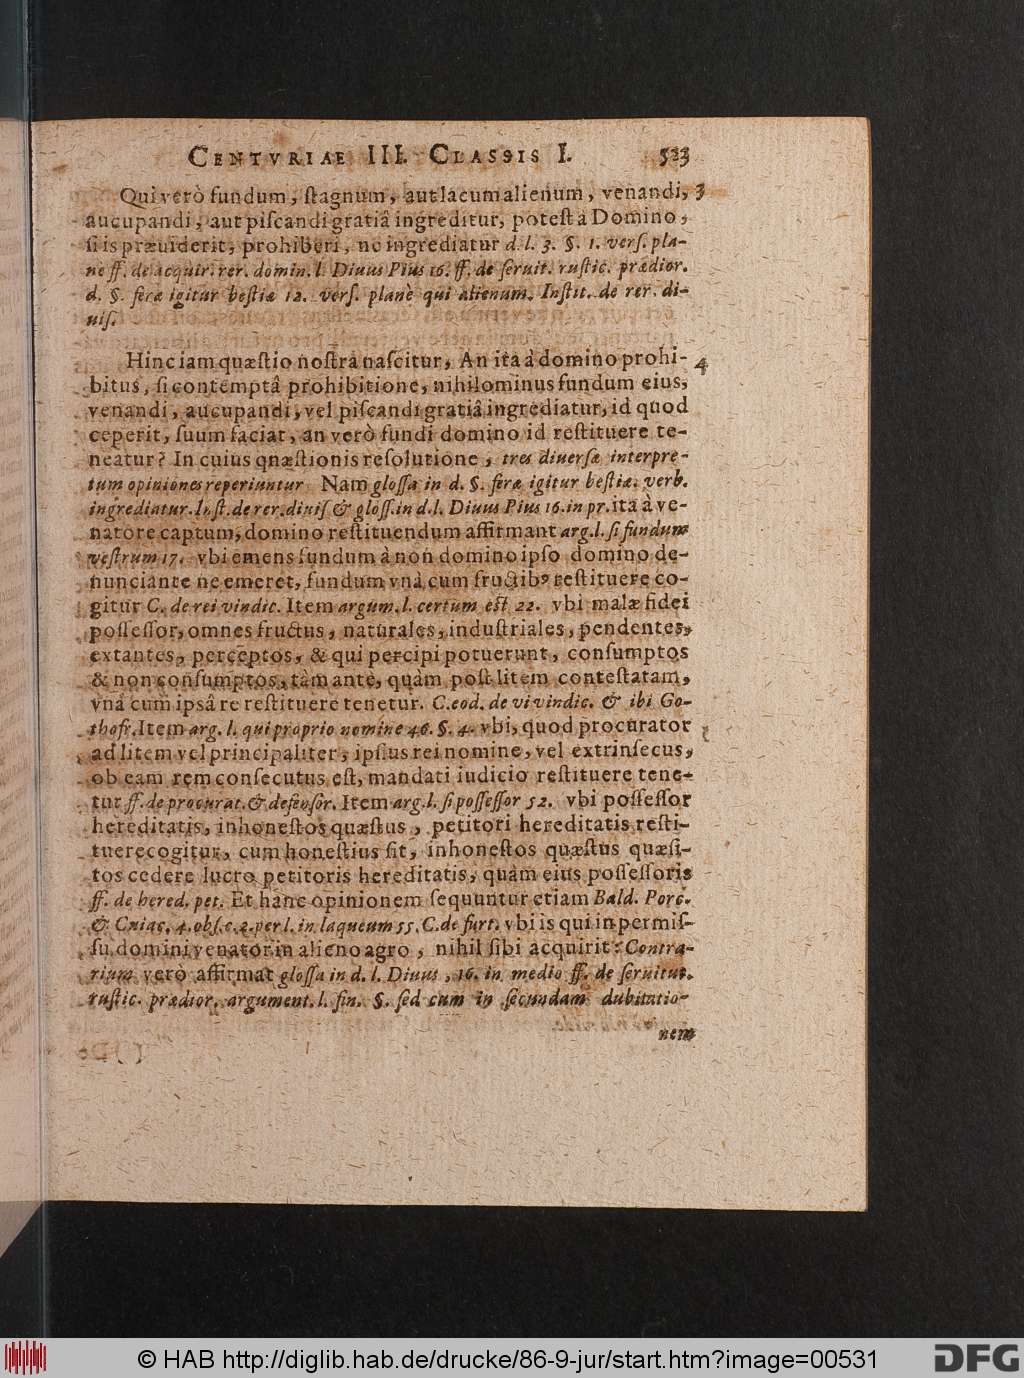 CENTVRIAE III. CLASSIS I. 523
Qui verò fundum, ſtagnum, aut lacum alienum, venandi, 3
aucupandi, aut piſcandi gratiâ ingreditur, poteſt à Domino,
ſi is præuiderit, prohiberi, ne ingrediatur d. l. 3. §. 1. verſ. pla-
ne ff. de acquir. rer. domin. l. Diuus Pius 16. ff. de ſeruit. ruſtic. prædior.
d. §. feræ igitur beſtiæ 12. verſ. planè qui alienum. Inſtit. de rer. di-
uiſ.
Hinc iam quæſtio noſtra naſcitur, An ita à domino prohi- 4
bitus, ſi contemptâ prohibitione, nihilominus fundum eius,
venandi, aucupandi, vel piſcandi gratiâ ingrediatur, id quod
ceperit, ſuum faciat, an verò fundi domino id reſtituere te-
neatur? In cuius qnæſtionis reſolutione, tres diuerſæ interpre-
tum opiniones reperiuntur. Nam gloſſa in d. §. feræ igitur beſtiæ. verb.
ingrediatur. Inſt. de rer. diuiſ. & gloſſ. in d. l. Diuus Pius 16. in pr. ita à ve-
natore captum, domino reſtituendum affirmant arg. l. ſi fundum
veſtrum 17. vbi emens fundum à non domino ipſo domino de-
nunciante ne emeret, fundum vnà cum fructibꝰ reſtituere co-
gitur C. de rei vindic. Item argum. l. certum eſt 22. vbi malæ fidei
poſſeſſor, omnes fructus, naturales, induſtriales, pendentes,
extantes, perceptos, & qui percipi potuerunt, conſumptos
& non conſumptos, tàm ante, quàm poſt litem conteſtatam,
vnâ cum ipsâ re reſtituere tenetur. C. eod. de vi vindic. & ibi Go-
thofr. Item arg. l. qui proprio nomine 46. §. 4. vbi, quod procurator
ad litem vel principaliter, ipſius rei nomine, vel extrinſecus,
ob eam rem conſecutus eſt, mandati iudicio reſtituere tene-
tur ff. de procurat. & defenſor. Item arg. l. ſi poſſeſſor 52. vbi poſſeſſor
hereditatis, inhoneſtos quæſtus, petitori hereditatis reſti-
tuere cogitur, cum honeſtius ſit, inhoneſtos quæſtus quæſi-
tos cedere lucro petitoris hereditatis, quàm eius poſſeſſoris
ff. de hered. pet. Et hanc opinionem ſequuntur etiam Bald. Porc.
& Cuiac. 4. obſ. c. 2. per l. in laqueum 55. C. de furt. vbi is qui in permiſ-
ſu domini venator in alieno agro, nihil ſibi acquirit: Contra-
rium verò affirmat gloſſa in d. l. Diuus, 16. in medio ff. de ſeruitut.
ruſtic. prædior. argument. l. fin. §. ſed cum in ſecundam dubitatio-
nem
© HAB http://diglib.hab.de/drucke/86-9-jur/start.htm?image=00531 DFG